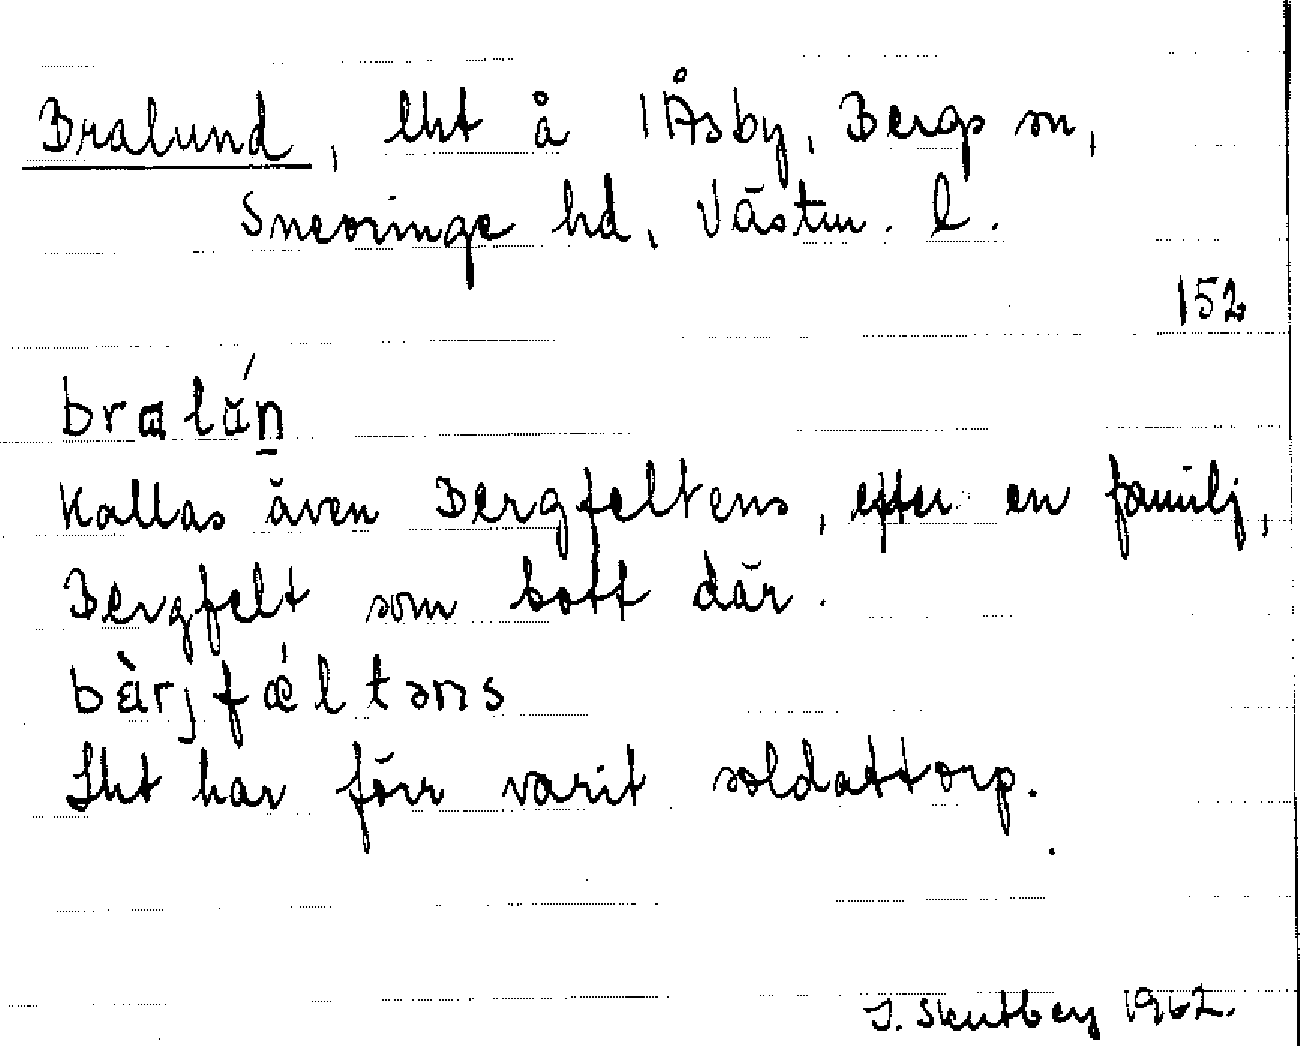 Bralund, lht å 1 Åsby, Bergs sn,
Snevringe hd, Västm. l.
152
bralán̠
Kallas även Bergfeltens, efter en familj,
Bergfelt som bott där.
bàrjfǽltəns
Lht har förr varit soldattorp.
I. Skutbey 1962.